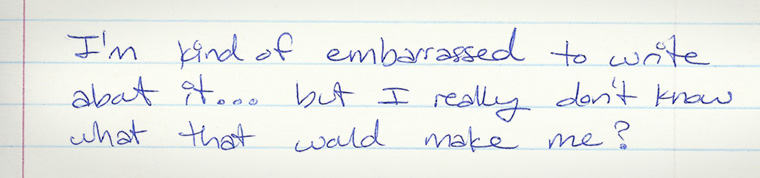 I'm kind of embarrassed to write
about it... but I really don't know
what that would make me?